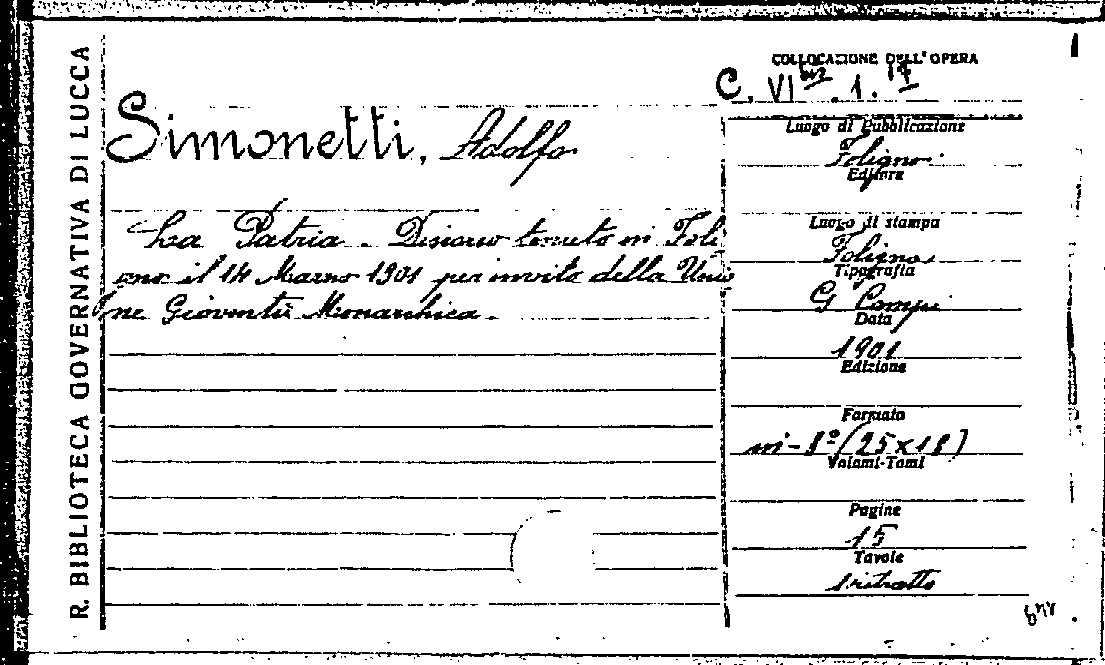 R. BIBLIOTECA GOVERNATIVA DI LUCCA
COLLOCAZIONE DELL'OPERA
C. VI bis . 1. 17
Simonetti, Adolfo
La Patria - Discorso tenuto in Foli
gno il 14 Marzo 1901 per invito della Unio
ne Gioventù Monarchica.
Luogo di Pubblicazione
Foligno
Editore
Luogo di stampa
Foligno
Tipografia
G Campi
Data
1901
Edizione
Formato
in-8° (25x18)
Volumi-Tomi
Pagine
15
Tavole
1 ritratto